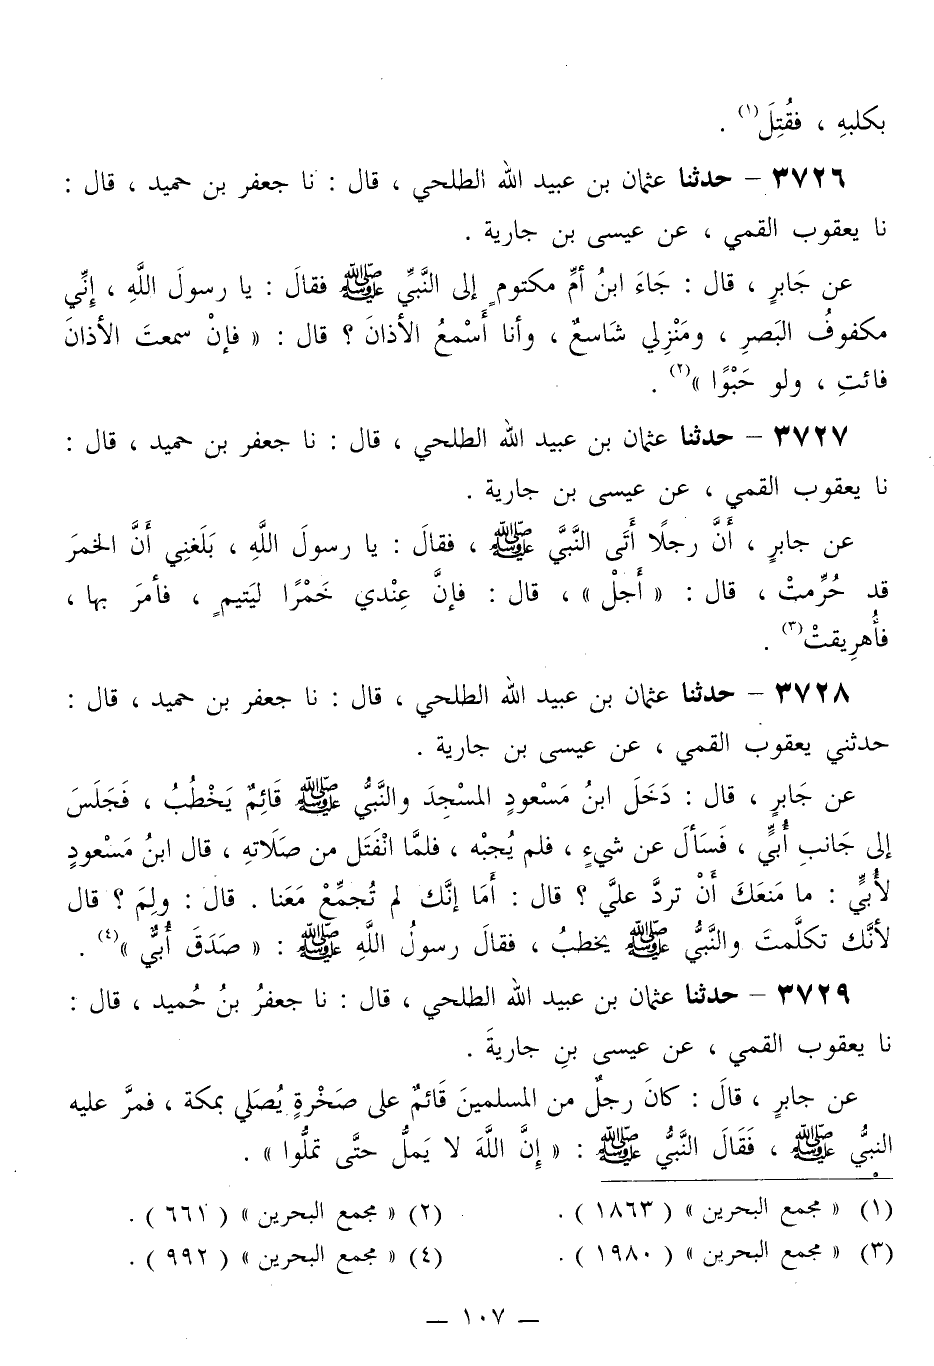 بكلبهِ ، فقُتِلَ(١) .
٣٧٢٦ – حدثنا عثمان بن عبيد الله الطلحي ، قال : نا جعفر بن حميد ، قال :
نا يعقوب القمي ، عن عيسى بن جارية .
عن جَابرٍ ، قال : جَاءَ ابنُ أمِّ مكتومٍ إلى النَّبيِّ ﷺ فقالَ : يا رسولَ اللَّهِ ، إنِّي
مكفوفُ البَصرِ ، ومَنْزِلي شاسعٌ ، وأنا أَسْمعُ الأذانَ ؟ قال : « فإنْ سمعتَ الأذانَ
فائتِ ، ولو حَبْوًا »(٢) .
٣٧٢٧ – حدثنا عثمان بن عبيد الله الطلحي ، قال : نا جعفر بن حميد ، قال :
نا يعقوب القمي ، عن عيسى بن جارية .
عن جابرٍ ، أَنَّ رجلًا أَتَى النَّبيَّ ﷺ ، فقالَ : يا رسولَ اللَّهِ ، بَلَغنِي أَنَّ الخمرَ
قد حُرِّمتْ ، قال : « أَجلْ » ، قال : فإنَّ عِنْدي خَمْرًا ليَتيمٍ ، فأمرَ بها ،
فأُهرِيقتْ(٣) .
٣٧٢٨ – حدثنا عثمان بن عبيد الله الطلحي ، قال : نا جعفر بن حميد ، قال :
حدثني يعقوب القمي ، عن عيسى بن جارية .
عن جَابرٍ ، قال : دَخَلَ ابنُ مَسْعودٍ المسْجِدَ والنَّبيُّ ﷺ قَائِمٌ يَخْطُبُ ، فَجَلَسَ
إلى جَانبِ أُبيٍّ ، فَسَألَ عن شيءٍ ، فلم يُجبْه ، فلمَّا انْفَتل من صلَاتهِ ، قال ابنُ مَسْعودٍ
لأُبيٍّ : ما مَنعَكَ أَنْ تردَّ عليَّ ؟ قال : أَمَا إنَّك لم تُجمِّعْ مَعَنا . قال : ولِمَ ؟ قال
لأنَّك تكلَّمتَ والنَّبيُّ ﷺ يخطبُ ، فقالَ رسولُ اللَّهِ ﷺ : « صَدَقَ أُبيٌّ »(٤) .
٣٧٢٩ – حدثنا عثمان بن عبيد الله الطلحي ، قال : نا جعفرُ بنُ حُميد ، قال :
نا يعقوب القمي ، عن عيسى بنِ جاريةَ .
عن جابرٍ ، قالَ : كانَ رجلٌ من المسلمينَ قَائمٌ على صَخْرةٍ يُصَلي بمكة ، فمرَّ عليه
النبيُّ ﷺ ، فَقَالَ النَّبيُّ ﷺ : « إِنَّ اللَّهَ لا يَملُّ حتَّى تملُّوا » .
(١) « مجمع البحرين » ( ١٨٦٣ ) . (٢) « مجمع البحرين » ( ٦٦١ ) .
(٣) « مجمع البحرين » ( ١٩٨٠ ) . (٤) « مجمع البحرين » ( ٩٩٢ ) .
— ١٠٧ —